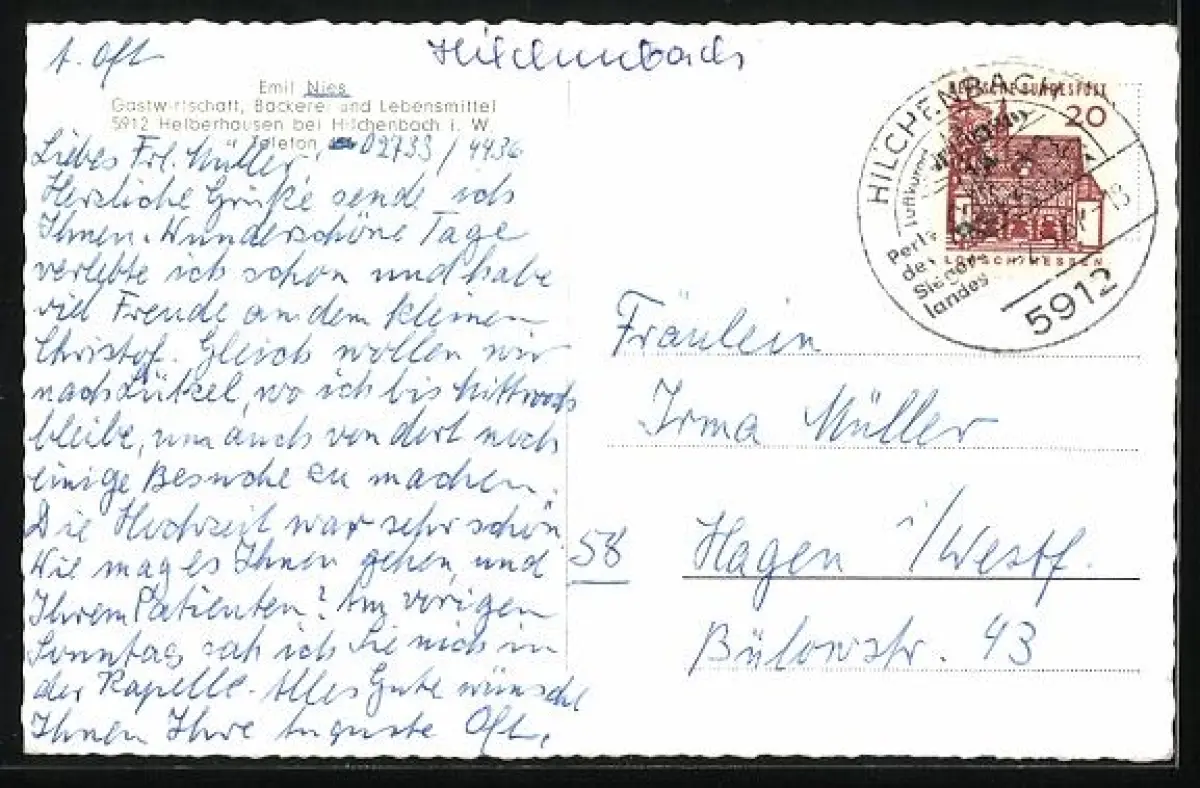 A. Oft
Hilchenbach
Emil Nies
Gastwirtschaft, Bäckerei und Lebensmittel
5912 Helberhausen bei Hilchenbach i. W.
Telefon 02733/4436
Liebes Frl. Müller,
Herzliche Grüße sende ich
Ihnen. Wunderschöne Tage
verlebte ich schon und habe
viel Freude an dem kleinen
Christof. Gleich wollen wir
nach Lützel, wo ich bis Mittwoch
bleibe, um auch von dort noch
einige Besuche zu machen.
Die Hochzeit war sehr schön.
Wie mag es Ihnen gehen, und
Ihrem Patienten? Am vorigen
Sonntag sah ich Sie nich in
der Kapelle. Alles Gute wünscht
Ihnen Ihre Auguste Oft.
DEUTSCHE BUNDESPOST
20
LORSCH/HESSEN
HILCHENBACH
Luftkurort
Perle
des
Sieger-
landes
-18
5912
Fräulein
Irma Müller
58 Hagen i/Westf.
Bülowstr. 43